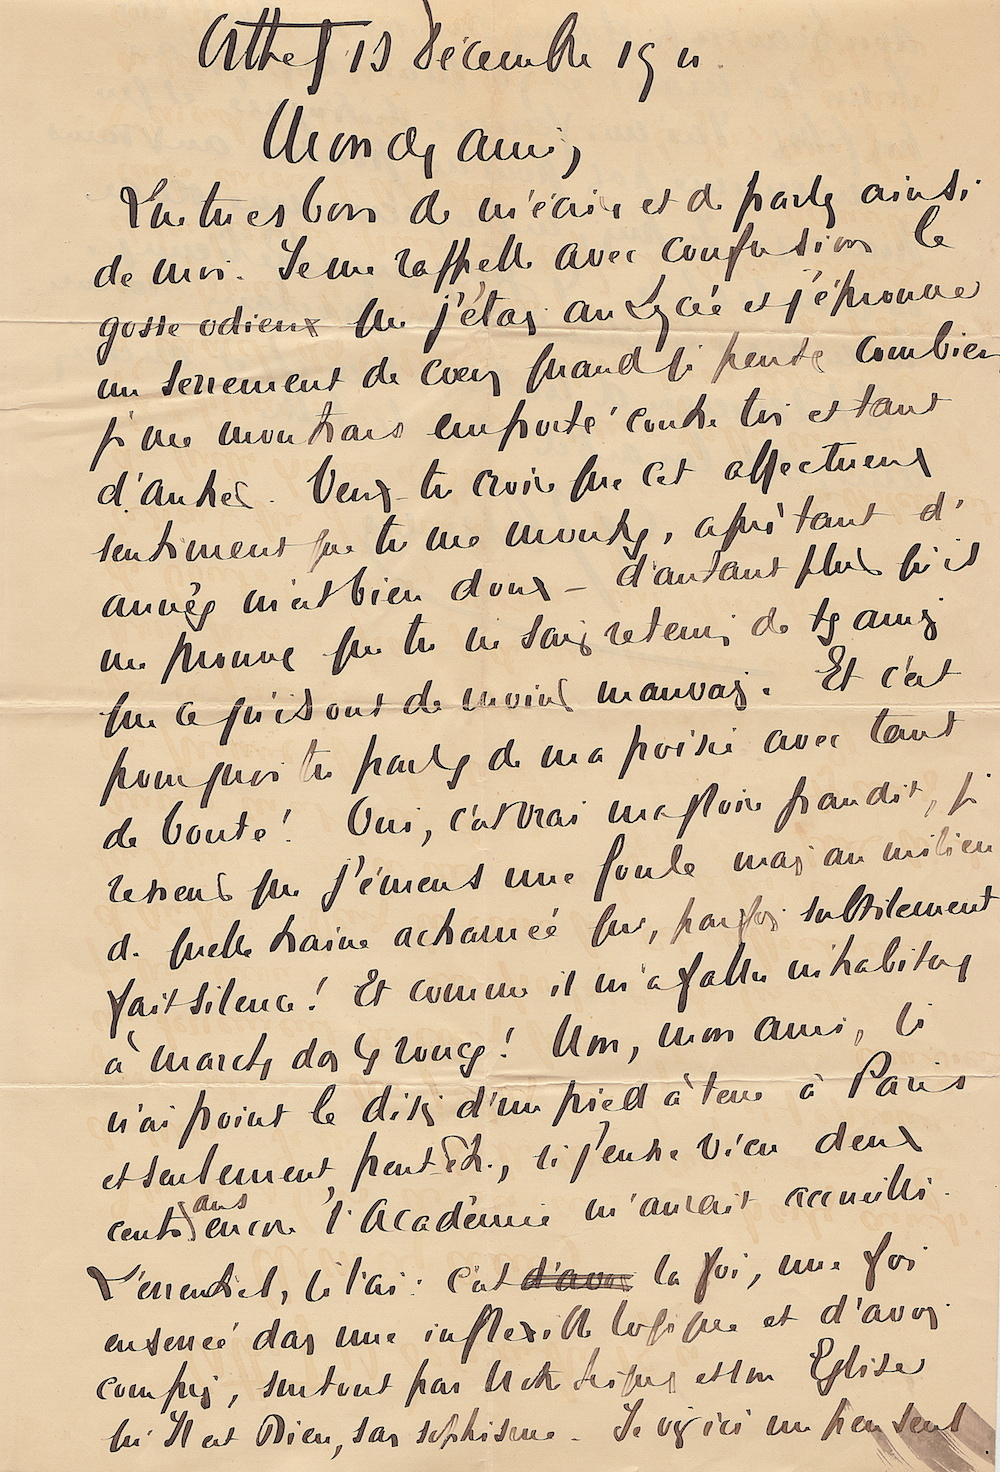 Orthez 13 Décembre 19
Mon cher ami,
Que tu es bon de m'écrire et de parler ainsi
de moi. Je me rappelle avec confusion le
gosse odieux que j'étais au Lycée et j'éprouve
un serrement de cœur quand je pense combien
je me montrais emporté contre toi et tant
d'autres. Veux-tu croire que cet affectueux
sentiment que tu me montres, après tant d'
années m'est bien doux – d'autant plus qu'il
me prouve que tu ne sais retenir de tes amis
que ce qu'ils ont de moins mauvais. Et c'est
pourquoi tu parles de ma poésie avec tant
de bonté! Oui, c'est vrai ma gloire grandit, je
ressens que j'émeus une foule mais au milieu
de quelle haine acharnée qui, parfois subtilement
fait silence! Et comme il m'a fallu m'habituer
à marcher dans les ronces! Non, mon ami, je
n'ai point le désir d'un pied à terre à Paris
et seulement, peut-être, si j'eusse vécu deux
cents ans encore l'Académie m'aurait accueilli.
L'essentiel, je l'ai: c'est d'avoir la foi, une foi
dans une inflexible logique et d'avoir
compris, surtout par Notre Seigneur et son Eglise
qu'Il est Dieu, sans sophisme. Je vis ici un peu seul